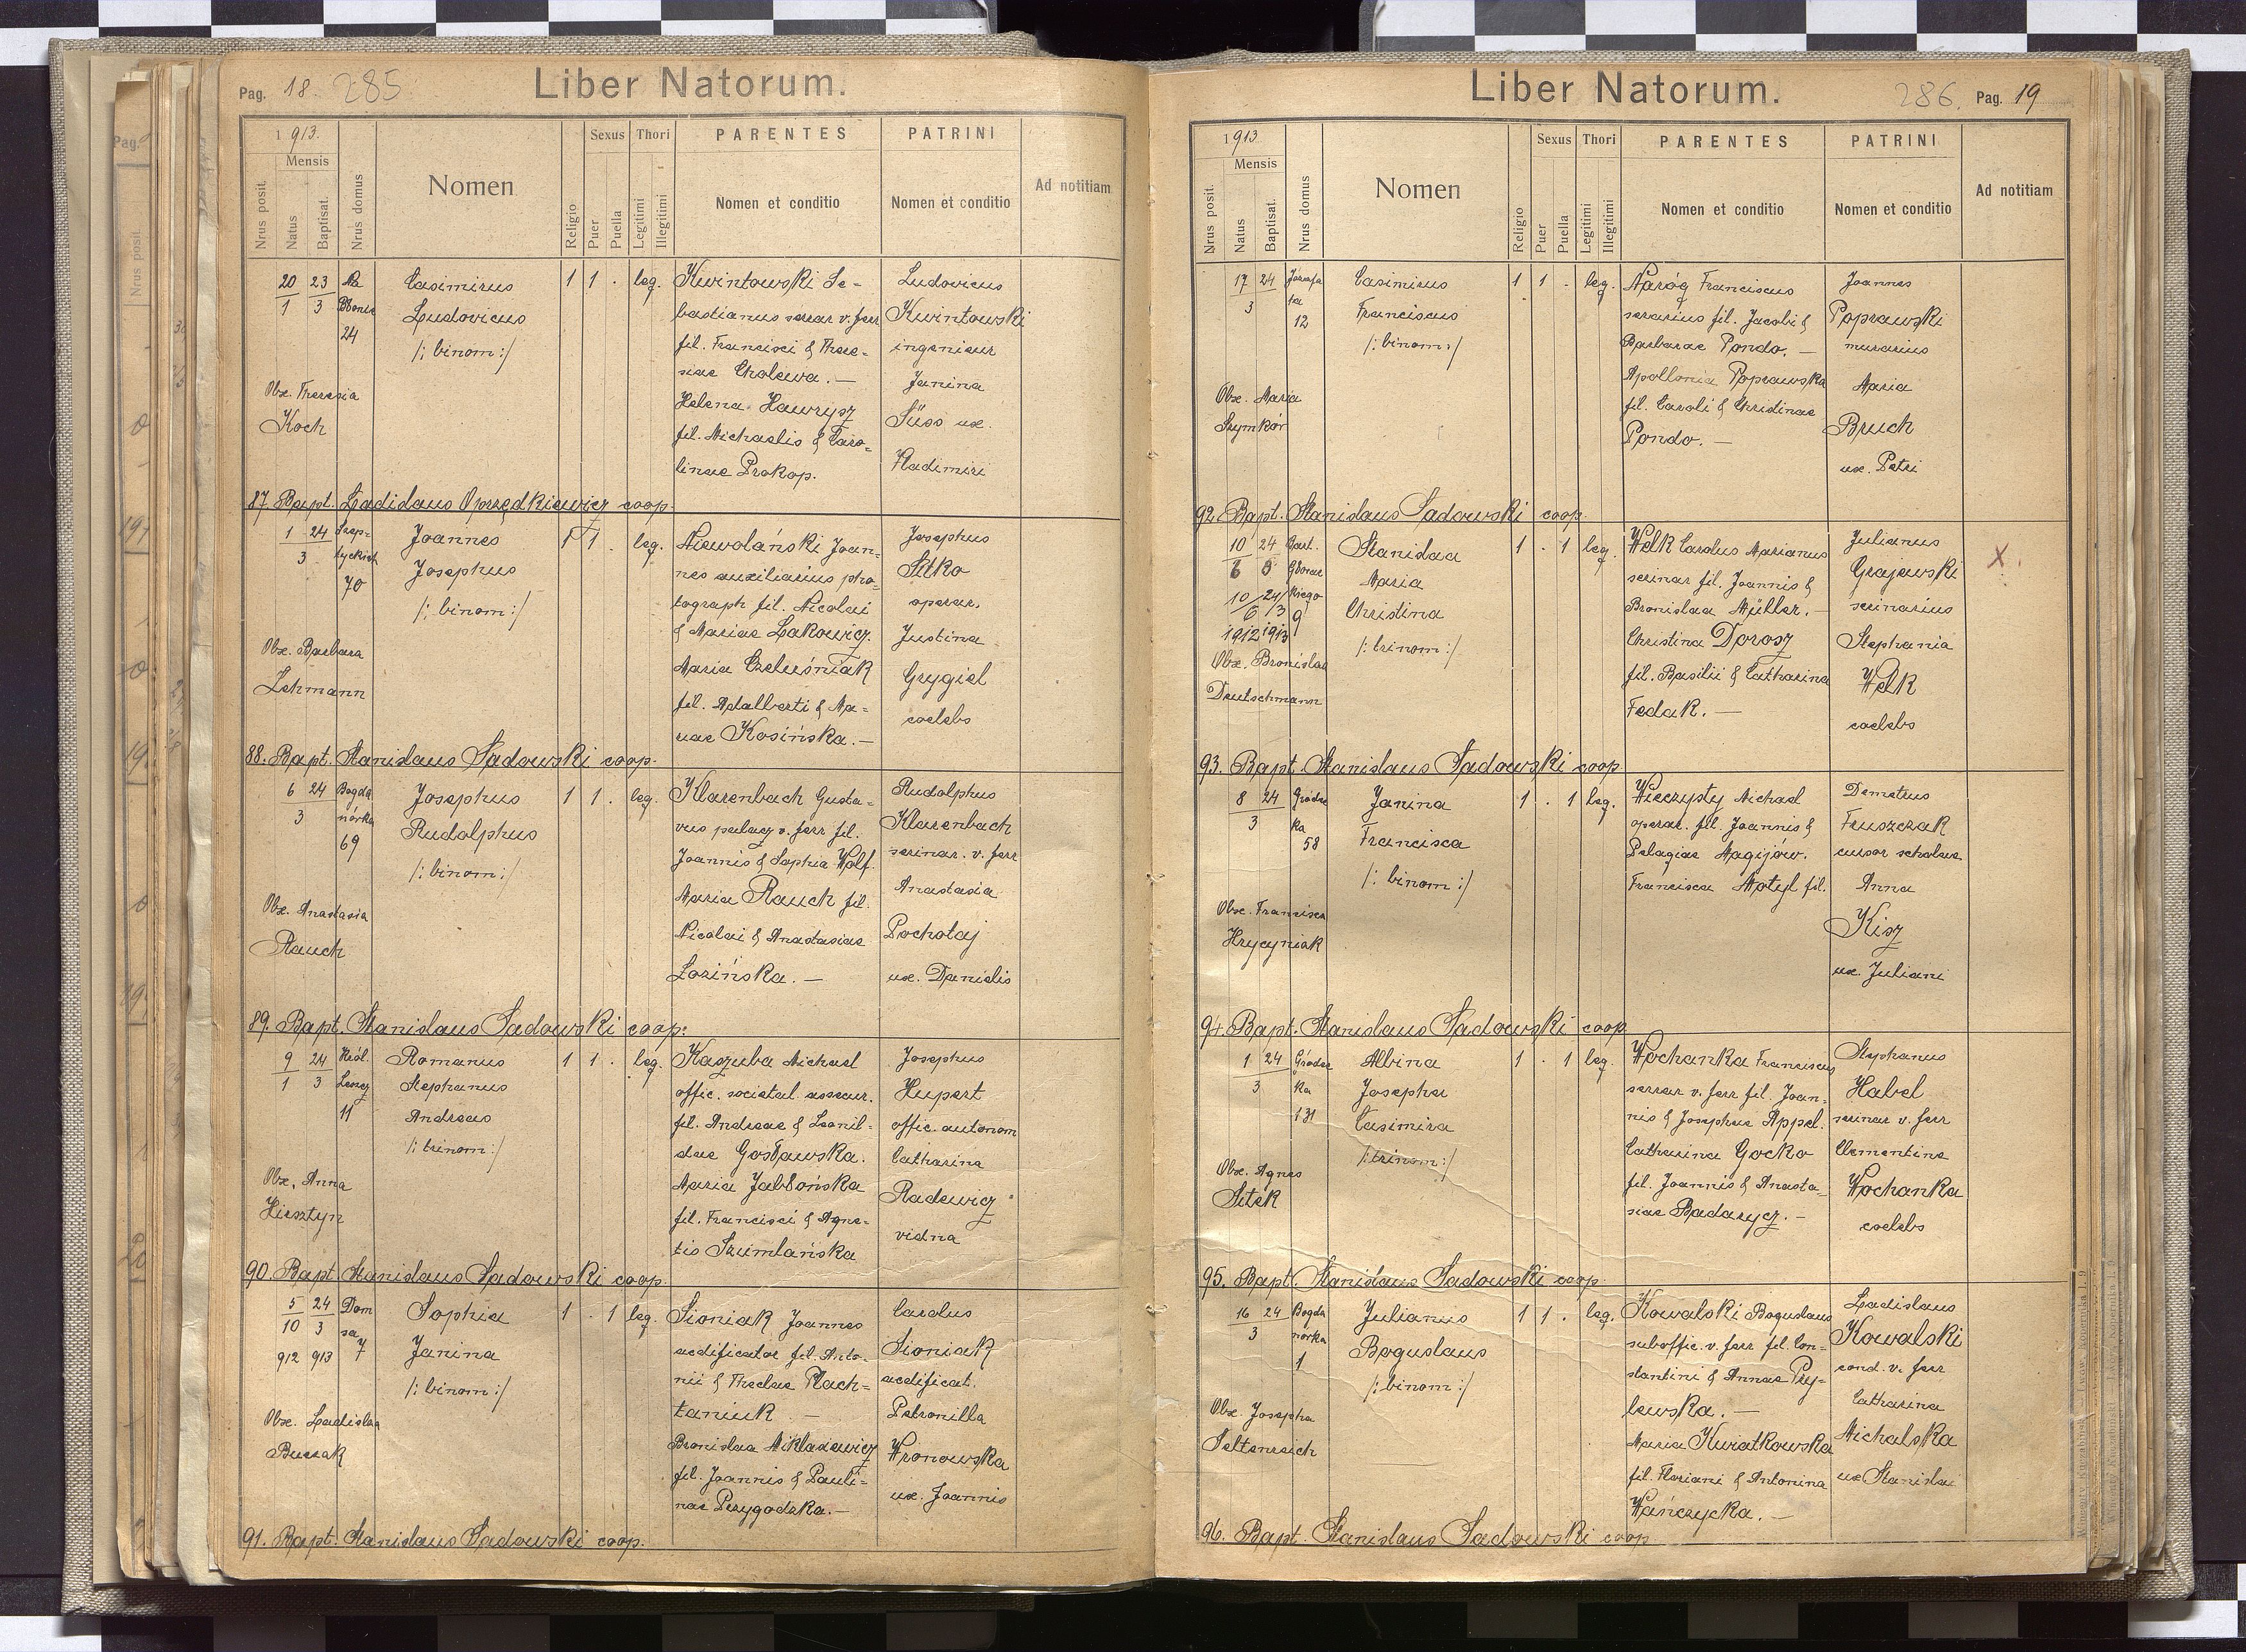 Pag. 18. 285
Liber Natorum.
1913.
Mensis
Nrus posit.
Natus
Baptisat.
Nrus domus
Nomen
Religio
Sexus
Puer
Puella
Thori
Legitimi
Illegitimi
PARENTES
Nomen et conditio
PATRINI
Nomen et conditio
Ad notitiam
20 23 Na
1 3 Błonie
24
Casimirus
Ludovicus
/: binom :/
1 1 . leg.
Kwintowski Se-
bastianus serrar v. ferr
fil. Francisci & There-
siae Cholewa. —
Helena Hawrysz
fil. Michaelis & Caro-
linae Prokop.
Ludovicus
Kwintowski
ingenieur
Janina
Süss ux.
Vladimiri
Obx. Theresia
Koch
87. Bapt. Ladislaus Oprzędkiewicz coop.
1 24 Szep-
3 tyckich
70
Joannes
Josephus
/: binom :/
1 1 . leg.
Niewolański Joan-
nes auxiliarius pho-
tograph fil. Nicolai
& Mariae Lakowicz.
Maria Czeluśniak
fil. Adalberti & Ma-
riae Kosińska. —
Josephus
Sitko
operar.
Justina
Grygiel
coelebs
Obx. Barbara
Lehmann
88. Bapt. Stanislaus Sadowski coop.
6 24 Bogda
3 nówka
69
Josephus
Rudolphus
/: binom :/
1 1 . leg.
Klarenbach Gusta-
vus palacz v. ferr fil.
Joannis & Sophia Wolf.
Maria Rauch fil.
Nicolai & Anastasiae
Łozińska. —
Rudolphus
Klarenbach
scrinar. v. ferr
Anastasia
Pochołaj
ux. Danielis
Obx. Anastasia
Rauch
89. Bapt. Stanislaus Sadowski coop.
9 24 Król.
1 3 Leszcz
11
Romanus
Stephanus
Andreas
/: trinom :/
1 1 . leg.
Kaszuba Michael
offic. societat. assecur.
fil. Andreae & Leonil-
dae Gosławska.
Maria Jabłońska
fil. Francisci & Agne-
tis Szumlańska
Josephus
Hupert
offic. autonom
Catharina
Radewicz
vidua
Obx. Anna
Hirsztyn
90. Bapt Stanislaus Sadowski coop.
5 24 Dom
10 3 sa
912 913 7
Sophia
Janina
/: binom :/
1 . 1 leg.
Sioniak Joannes
aedificator fil. Anto-
nii & Theclae Płach-
taniuk —
Bronislaa Mikłasiewicz
fil. Joannis & Pauli-
nae Przygodzka. —
Carolus
Sioniak
aedificat.
Petronilla
Wronowska
ux. Joannis
Obx. Ladislaa
Burzak
91. Bapt. Stanislaus Sadowski coop.
Liber Natorum.
286. Pag. 19
1913
Mensis
Nrus posit.
Natus
Baptisat.
Nrus domus
Nomen
Religio
Sexus
Puer
Puella
Thori
Legitimi
Illegitimi
PARENTES
Nomen et conditio
PATRINI
Nomen et conditio
Ad notitiam
17 24 Józefa
3 ta
12
Casimirus
Franciscus
/: binom :/
1 1 . leg.
Naróg Franciscus
serarius fil. Jacobi &
Barbarae Pondo. —
Apollonia Poprawska
fil. Caroli & Christinae
Pondo. —
Joannes
Poprawski
murarius
Maria
Bruch
ux. Petri
Obx. Maria
Szymkór
92. Bapt. Stanislaus Sadowski coop.
10 24 Bart.
6 3 Głowac
10/6 24/3 kiego
1912 1913 9
Stanislaa
Maria
Christina
/: trinom :/
1 . 1 leg.
Welk Carolus Marianus
scrinar fil. Joannis &
Bronislaa Müller. —
Christina Dorosz
fil. Basilii & Catharina
Fedak. —
Julianus
Grajewski
scrinarius
Stephania
Welk
coelebs
X.
Obx. Bronislaa
Deutschmann
93. Bapt. Stanislaus Sadowski coop.
8 24 Gródec
3 ka
58
Janina
Francisca
/: binom :/
1 . 1 leg.
Wieczysty Michael
operar. fil. Joannis &
Pelagiae Magijów.
Francisca Motyl fil.
Demetrus
Fruszczak
cursor scholae
Anna
Kisz
ux. Juliani
Obx. Francisca
Hrycyniak
94. Bapt. Stanislaus Sadowski coop
1 24 Gródec
3 ka
131
Albina
Josepha
Casimira
/: trinom :/
1 . 1 leg.
Wochanka Franciscus
serrar v. ferr fil. Joan-
nis & Josephae Appel.
Catharina Gocko
fil. Joannis & Anasta-
siae Badarycz. —
Stephanus
Habel
scrinar v. ferr
Clementina
Wochanka
coelebs
Obx. Agnes
Sitek
95. Bapt. Stanislaus Sadowski coop.
16 24 Bogda
3 nówka
1
Julianus
Boguslaus
/: binom :/
1 1 . leg.
Kowalski Boguslaus
suboffic. v. ferr fil. Con-
stantini & Annae Pry-
lewska. —
Maria Kwiatkowska
fil. Floriani & Antonina
Wańczycka. —
Ladislaus
Kowalski
cond. v. ferr
Catharina
Michalska
ux Stanislai
Obx. Josepha
Seltenreich
96. Bapt. Stanislaus Sadowski coop